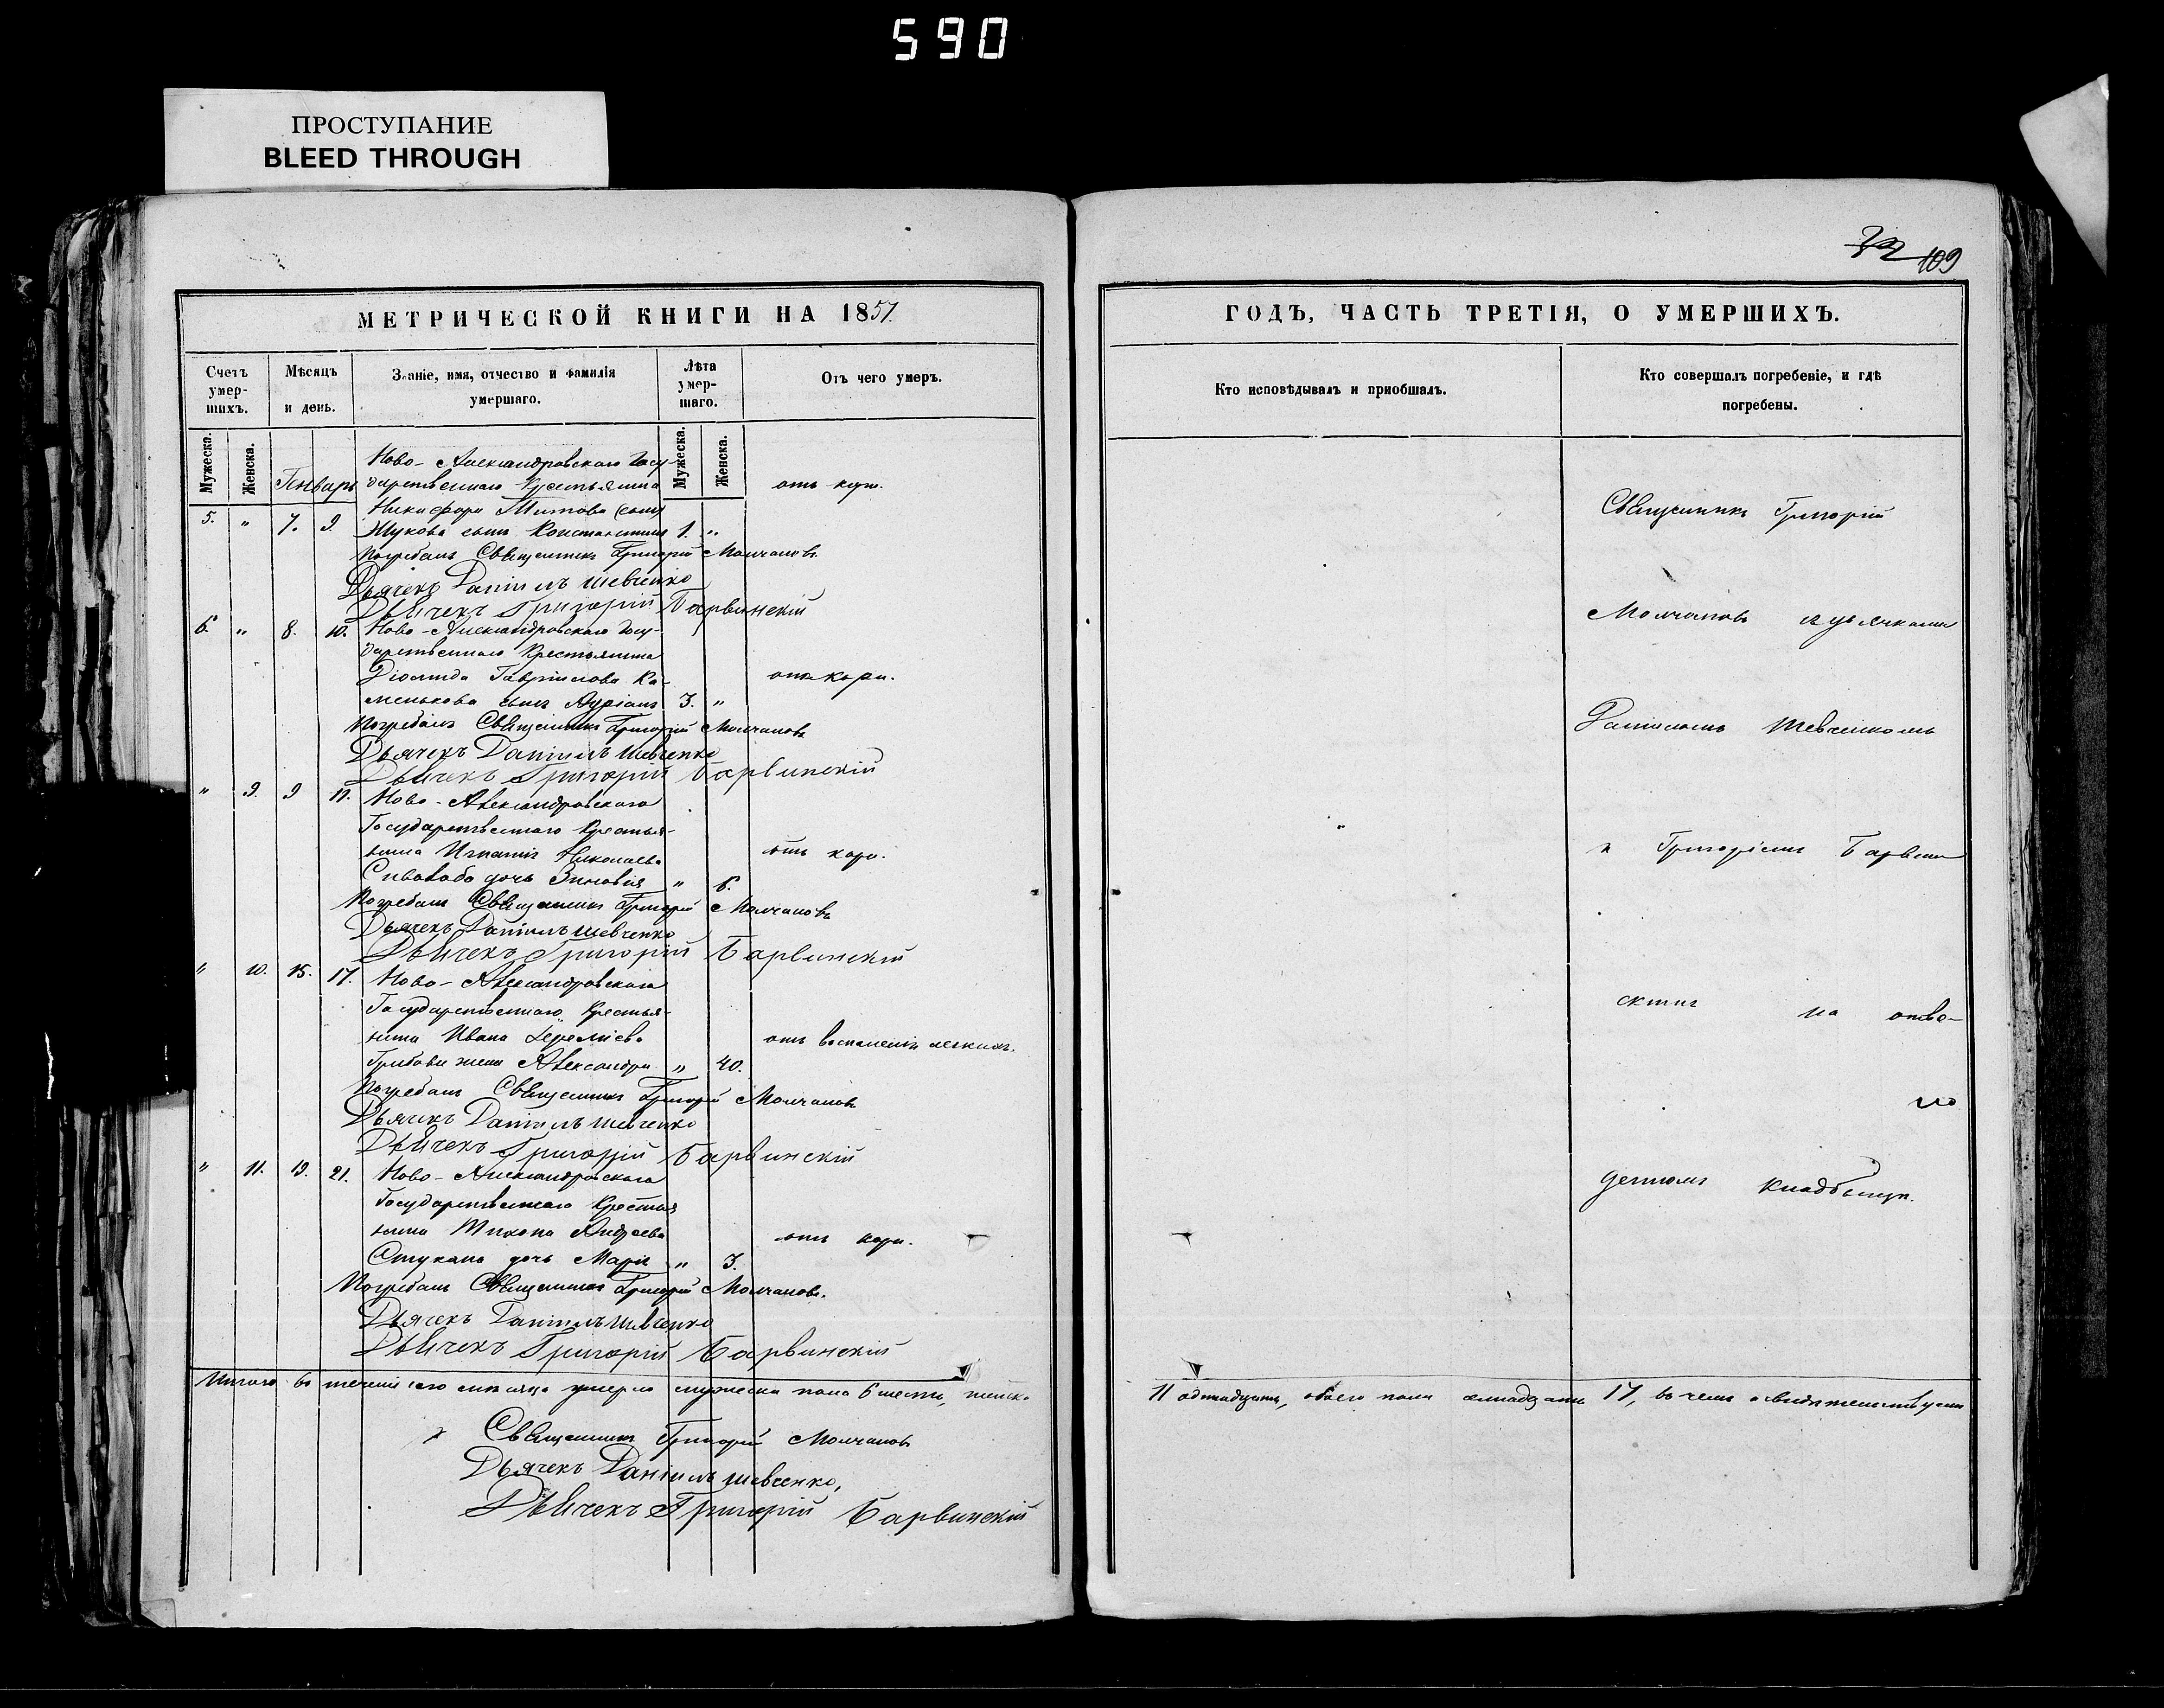 590
ПРОСТУПАНИЕ
BLEED THROUGH
109
МЕТРИЧЕСКОЙ КНИГИ НА 1857.
Счетъ умер-шихъ.
Мѣсяцъ и день.
Званіе, имя, отчество и фамилія умершаго.
Лѣта умер-шаго.
Отъ чего умеръ.
Мужеска.
Женска.
Мужеска.
Женска.
Генварь
Ново-Александровскаго Госу-
дарственнаго Крестьянина
отъ кори.
Никифора Титова (сына)
5. " 7. 9. Жукова сынъ Константинъ 1. "
Погребалъ Священникъ Григорій Молчановъ
Дьячекъ Даніилъ Шевченко
Дьячекъ Григорій Барвинскій
6. " 8. 10. Ново-Александровскаго Госу-
дарственнаго Крестьянина
Діомида Гавріилова Ка-
отъ кори.
менькова сынъ 3. "
Погребалъ Священникъ Григорій Молчановъ
Дьячекъ Даніилъ Шевченко
Дьячекъ Григорій Барвинскій
" 9. 9 11. Ново-Александровскаго
Государственнаго Крестья-
нина Игнатія Николаева
отъ кори.
дочь Зиновія " 6.
Погребалъ Священникъ Григорій Молчановъ
Дьячекъ Даніилъ Шевченко
Дьячекъ Григорій Барвинскій
" 10. 15. 17. Ново-Александровскаго
Государственнаго Крестья-
нина Ивана Ереміева
отъ воспаленія легкихъ.
жена Александра " 40.
Погребалъ Священникъ Григорій Молчановъ
Дьячекъ Даніилъ Шевченко
Дьячекъ Григорій Барвинскій
" 11. 19. 21. Ново-Александровскаго
Государственнаго Крестья
нина Тихона Андреева
отъ кори.
Стукана дочь Марія " 3.
Погребалъ Священникъ Григорій Молчановъ.
Дьячекъ Даніилъ Шевченко
Дьячекъ Григорій Барвинскій
Итого въ теченіи сего мѣсяца умерло мужеска пола 6 шесть, женска
Священникъ Григорій Молчановъ
Дьячекъ Даніилъ Шевченко,
Дьячекъ Григорій Барвинскій
ГОДЪ, ЧАСТЬ ТРЕТІЯ, О УМЕРШИХЪ.
Кто исповѣдывалъ и приобшалъ.
Кто совершалъ погребеніе, и гдѣ погребены.
Священникъ Григорій
Молчановъ съ дьячками
Даніиломъ Шевченкомъ
и Григоріемъ Барвин
скимъ на отве-
но
денномъ кладбищѣ.
11 одинадцать, обоего пола семнадцать 17, въ чемъ и свидѣтельствуемъ